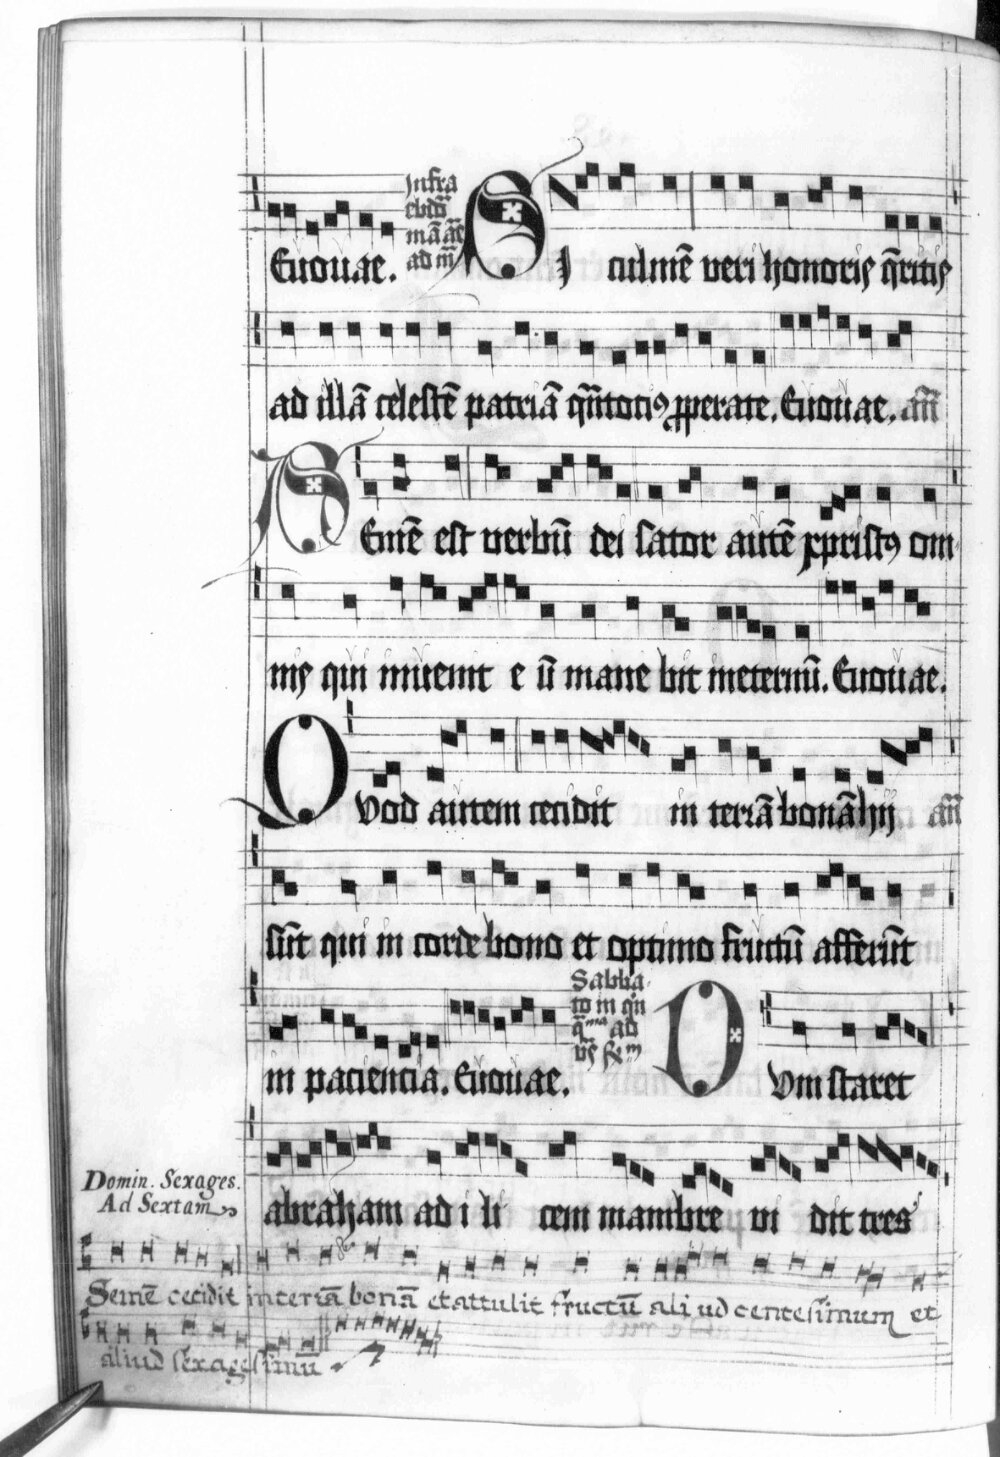 Euouae. Infra
ebdō
mā añ
ad m̄
SI culmē veri honoris q̄ritis
ad illā celestē patriā q̄ntotiꝯ ꝓperate. Euouae. añ
SEmē est verbū dei sator autē xp̄ristꝯ om
nis qui inuenit e ū mane bit ineternū. Euouae.
QVod autem cecidit in terrā bonā hij añ
sūt qui in corde bono et optimo fructū afferūt
in paciencia. Euouae. Sabba
to in qn̄
ad
DVm staret
abraham ad i li cem mambre vi dit tres
Domin. Sexages.
Ad Sextam
Semē cecidit interrā bonā et attulit fructū ali ud centesimum et
aliud sexagesimū